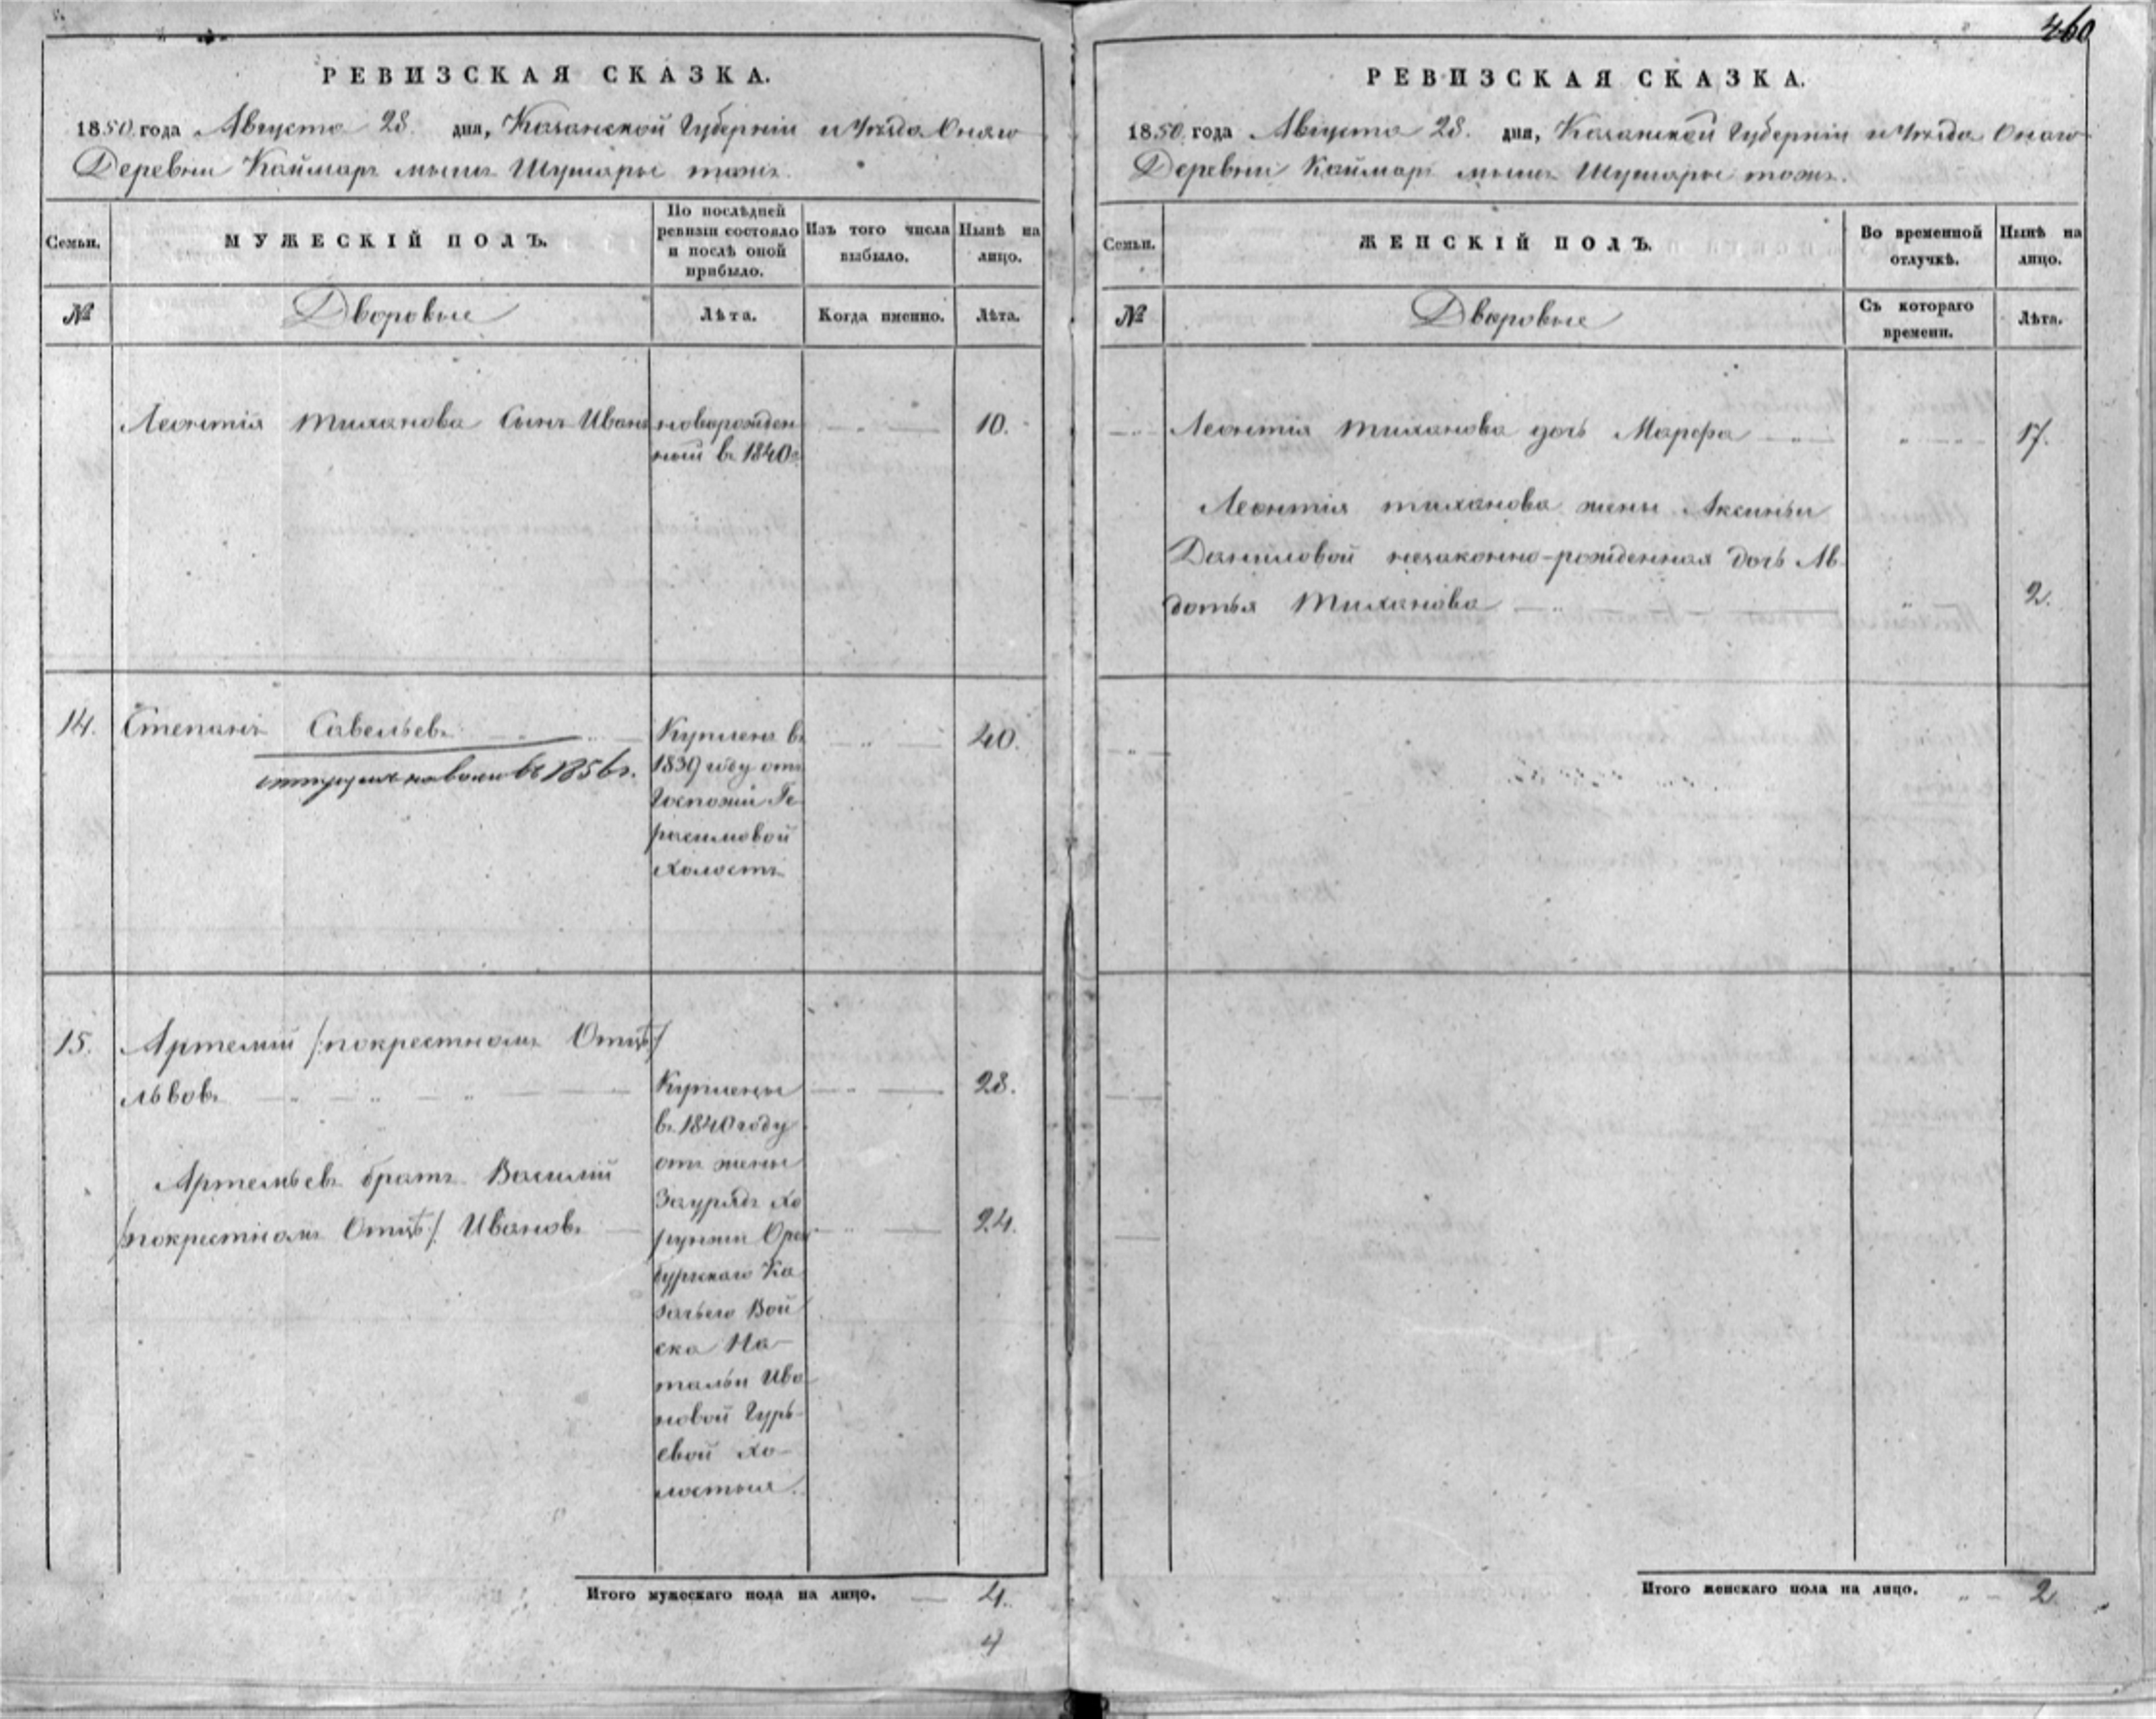 460
РЕВИЗСКАЯ СКАЗКА.
1850 года Августа 28 дня, Казанской Губерніи и Уѣзда Онаго
Деревни Каймаръ мысы Шушары тожъ.
Семьи.
МУЖЕСКІЙ ПОЛЪ.
По послѣдней
ревизіи состояло
и послѣ оной
прибыло.
Изъ того числа
выбыло.
Нынѣ на
лицо.
№
Дворовые
Лѣта.
Когда именно.
Лѣта.
Леонтія Тиханова Сынъ Иванъ
новорожден
ный въ 1840
10.
14.
Степанъ Савельевъ
отпущенъ на волю въ 1856 г.
Купленъ въ
1839 году отъ
Госпожи Ге
расимовой
холостъ
40.
15.
Артемій /:по крестномъ Отцѣ/
Львовъ
28.
Артемьевъ братъ Василий
/по крестномъ Отцѣ:/ Ивановъ
24.
Куплены
въ 1840 году
отъ жены
Заурядъ Хо
рунжи Орен
бургскаго Ка
зачьего Вой
ска На
тальи Ива
новой Гурь
евой хо
лостые.
Итого мужескаго пола на лицо. 4.
4
РЕВИЗСКАЯ СКАЗКА.
1850 года Августа 28. дня, Казанской Губерніи и Уѣзда Онаго
Деревни Каймаръ Шушары тожъ.
Семьи.
ЖЕНСКІЙ ПОЛЪ.
Во временной
отлучкѣ.
Нынѣ на
лицо.
№
Дворовые
Съ котораго
времени.
Лѣта.
Леонтія Тиханова дочь Марфа
17.
Леонтія Тиханова жены Аксиньи
Даниловой незаконно-рожденная дочь Ав
дотья Тиханова
2.
Итого женскаго пола на лицо. 2